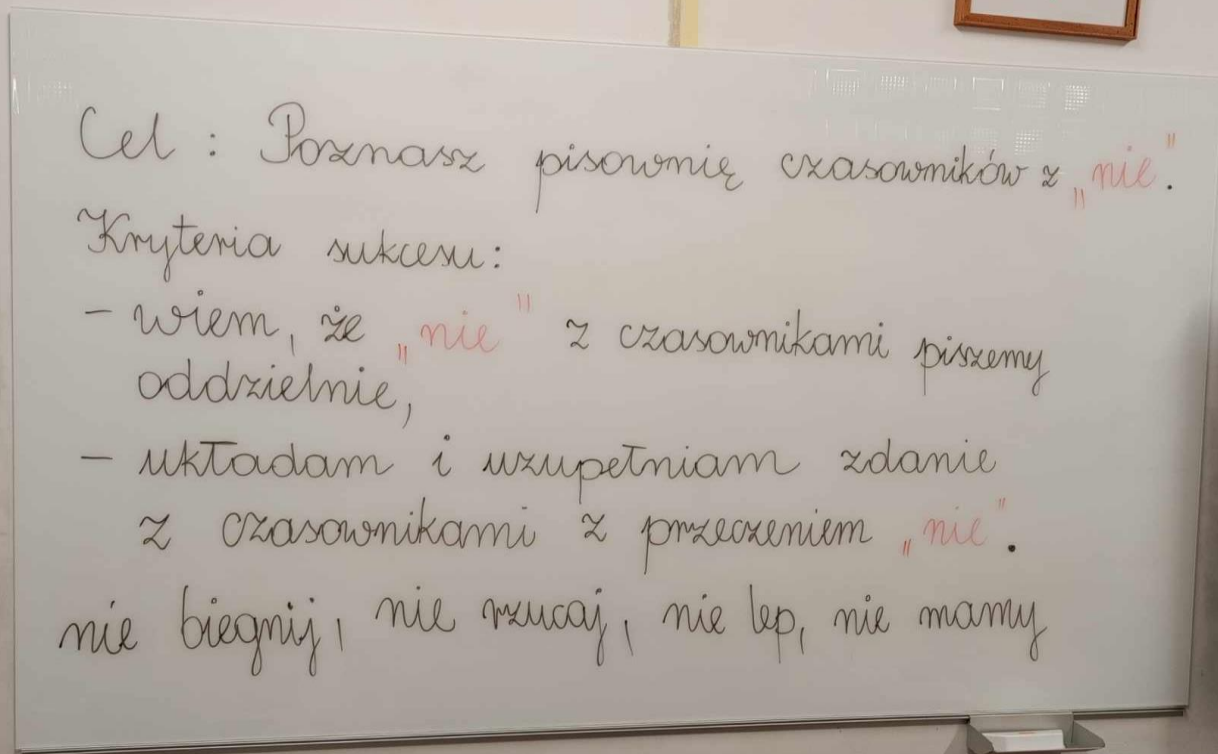 Cel : Poznasz pisownię czasowników z „nie”.
Kryteria sukcesu:
– wiem, że „nie” z czasownikami piszemy
oddzielnie,
– układam i uzupełniam zdanie
z czasownikami z przeczeniem „nie”.
nie biegnij, nie rzucaj, nie lep, nie mamy